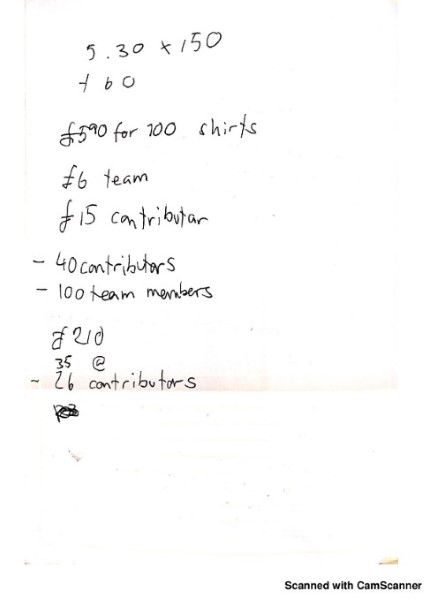 5.30 x 150
+ 60
£590 for 100 shirts
£6 team
£15 contributar
- 40 contributors
- 100 team members
£210
35 @
- 26 contributors
Scanned with CamScanner